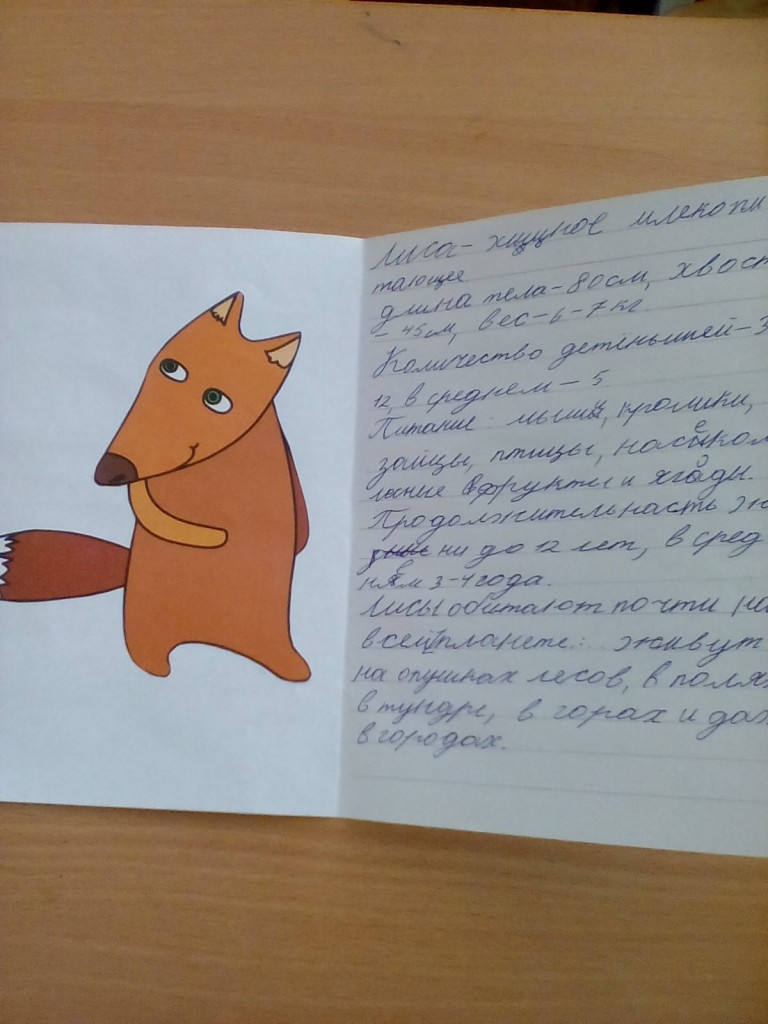 Лиса - хищное млекопи
тающее.
длина тела - 80 см, хвост
- 45 см, вес - 6 - 7 кг.
Количество детёнышей - 3
12, в среднем - 5
Питание: мыши, кролики,
зайцы, птицы, насеком
лесные фрукты и ягоды.
Продолжительнасть жи
зни до 12 лет, в сред
нем 3-4 года.
Лисы обитают почти на
всей планете: живут
на опушках лесов, в полях
в тундре, в горах и даж
в городах.